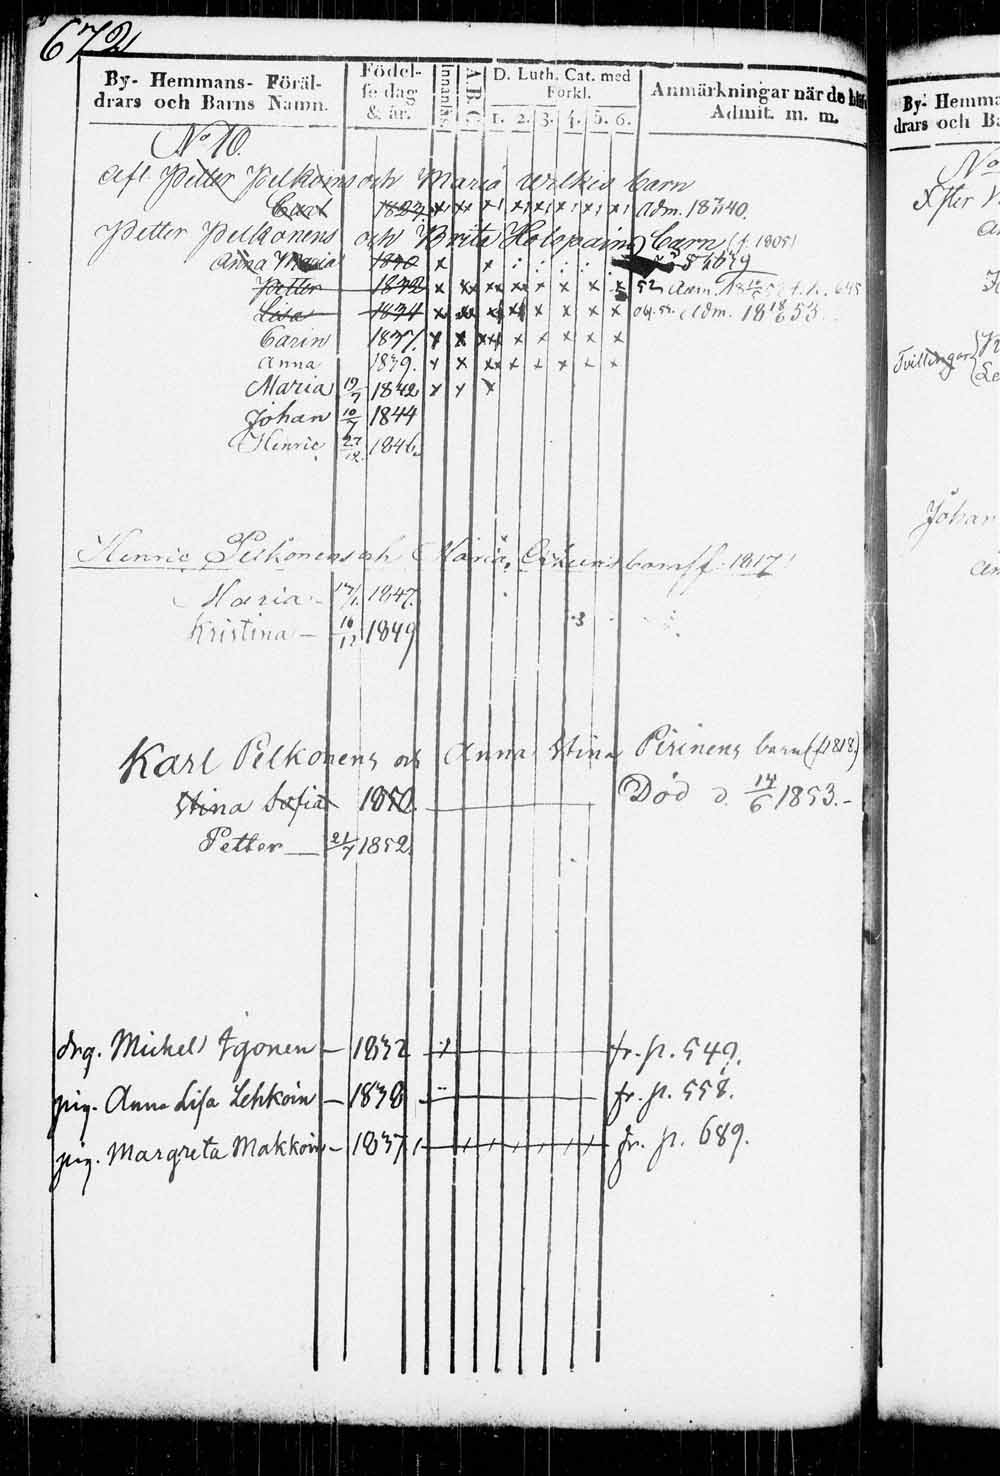 672
By- Hemmans- Föräl-
drars och Barns Namn.
Födel-
se dag
& år.
Innanläs.
A.B.C.
D. Luth. Cat. med
Förkl.
1. 2. 3. 4. 5. 6.
Anmärkningar när de
Admit. m. m.
No 10.
Afl Petter Pelkoins och Maria Wilkis barn
1823 x x x x x x x x Adm. 1840.
Petter Pelkonens och Brita Holopains barn (f. 1805)
Anna Maria 1830 x x
Petter 1832 x x x x x x x x 52 Adm. 645
Lisa 1834 x x x x x x x x Adm. 18 18/6 53.
Carin 1837. x x x x x x x x
Anna 1839. x x x x x x x x
Maria 19/7 1842 x x x
Johan 10/7 1844
Henric 27/12 1846.
Henric Pelkonens och Maria barn (f. 1817)
Maria - 17/1 1847.
Kristina - 16/12 1849
Karl Pelkonens och Anna Stina Pirinens barn (f 1818)
Stina Sofia 1850. Död d. 14/6 1853.-
Petter - 21/7 1852.
drg. Michel Igonen - 1832 fr. p. 549.
pig. Anna Lisa Lehkoin - 1838 fr. p. 558.
pig. Margreta Makkoin - 1837 fr. p. 689.
By- Hemma
drars och Ba
No
Efter
Tvillingar
Johan